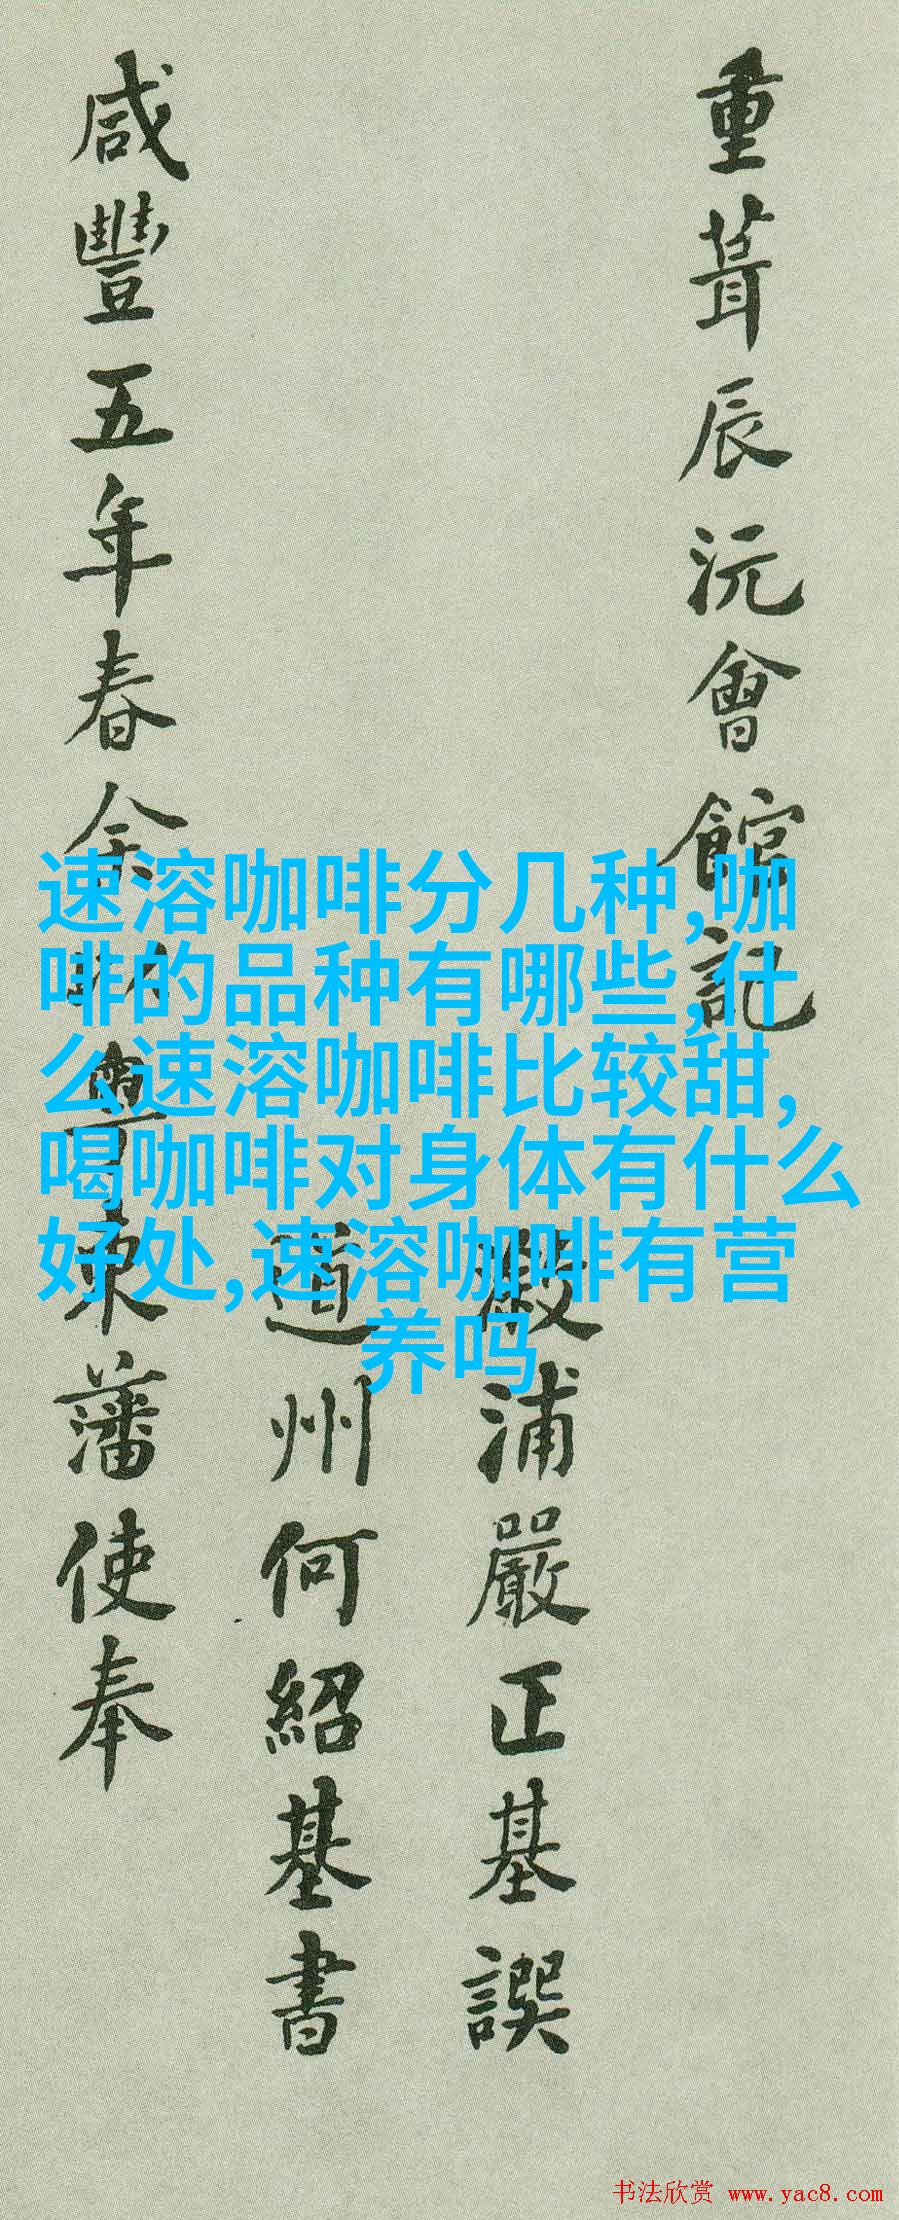 重葺辰沅會館記
漵浦嚴正基譔
道州何紹基書
咸豐五年春余以粵東藩使奉
速溶咖啡分几种,咖
啡的品种有哪些,什
么速溶咖啡比较甜,
喝咖啡对身体有什么
好处,速溶咖啡有营
养吗
书法欣赏 www.yac8.com